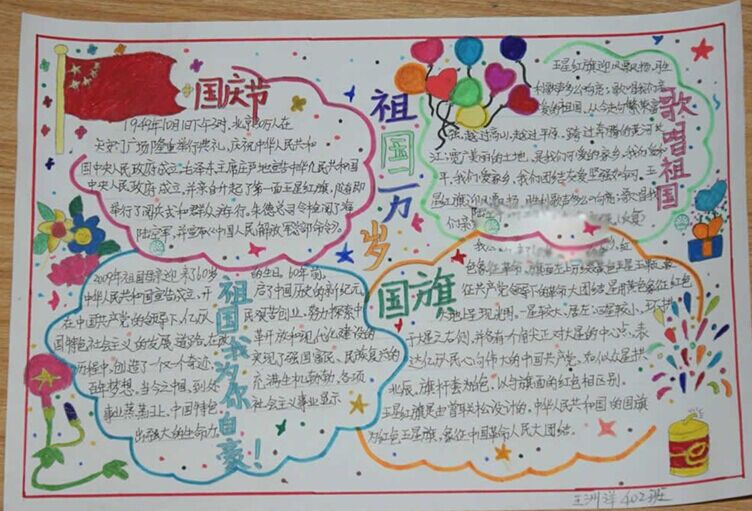 国庆节
1949年10月1日下午3时,北京30万人在
天安门广场隆重举行典礼,庆祝中华人民共和
国中央人民政府成立。毛泽东主席庄严地宣告中华人民共和国
中央人民政府成立,并亲自升起了第一面五星红旗,随即
举行了阅兵式和群众游行。朱德总司令检阅了海
陆空军,并宣布《中国人民解放军总部命令》。
祖国万岁
歌唱祖国
五星红旗迎风飘扬,胜
利歌声多么响亮;歌唱我们亲
爱的祖国,从今走向繁荣富
强。越过高山,越过平原,跨过奔腾的黄河长
江;宽广美丽的土地,是我们可爱的家乡,
我们爱家乡,我们团结友爱坚强如钢。五
星红旗迎风飘扬,胜利歌声多么响亮;歌唱我
们亲
祖国我为你自豪!
2009年祖国母亲迎来了60岁的生日。60年前,
中华人民共和国宣告成立,开启了中国历史的新纪元
在中国共产党的领导下,亿万民艰苦创业,努力探索中
国特色社会主义的发展道路,在改革开放和现代化建设的
历程中,创造了一个又一个奇迹,实现了强国富民、民族复兴的
百年梦想。当今之中国,到处充满生机勃勃,各项
事业蒸蒸日上,中国特色社会主义事业显示
出强大的生命力。
国旗
色象征革命,旗面左上方
征共产党领导下的革命大团结,星用黄色象征红色
大地呈现光明,一星较大,居左;四星较小,环拱
于大星之右侧,并各有一个角尖正对大星的中心点,表
达亿万人民心向伟大的中国共产党,
北辰。旗杆套为白色,以与旗面的红色相区别。
五星红旗是由曾联松设计的。中华人民共和国的国旗
为红色五星旗,象征中国革命人民大团结。
王洲洋 402班